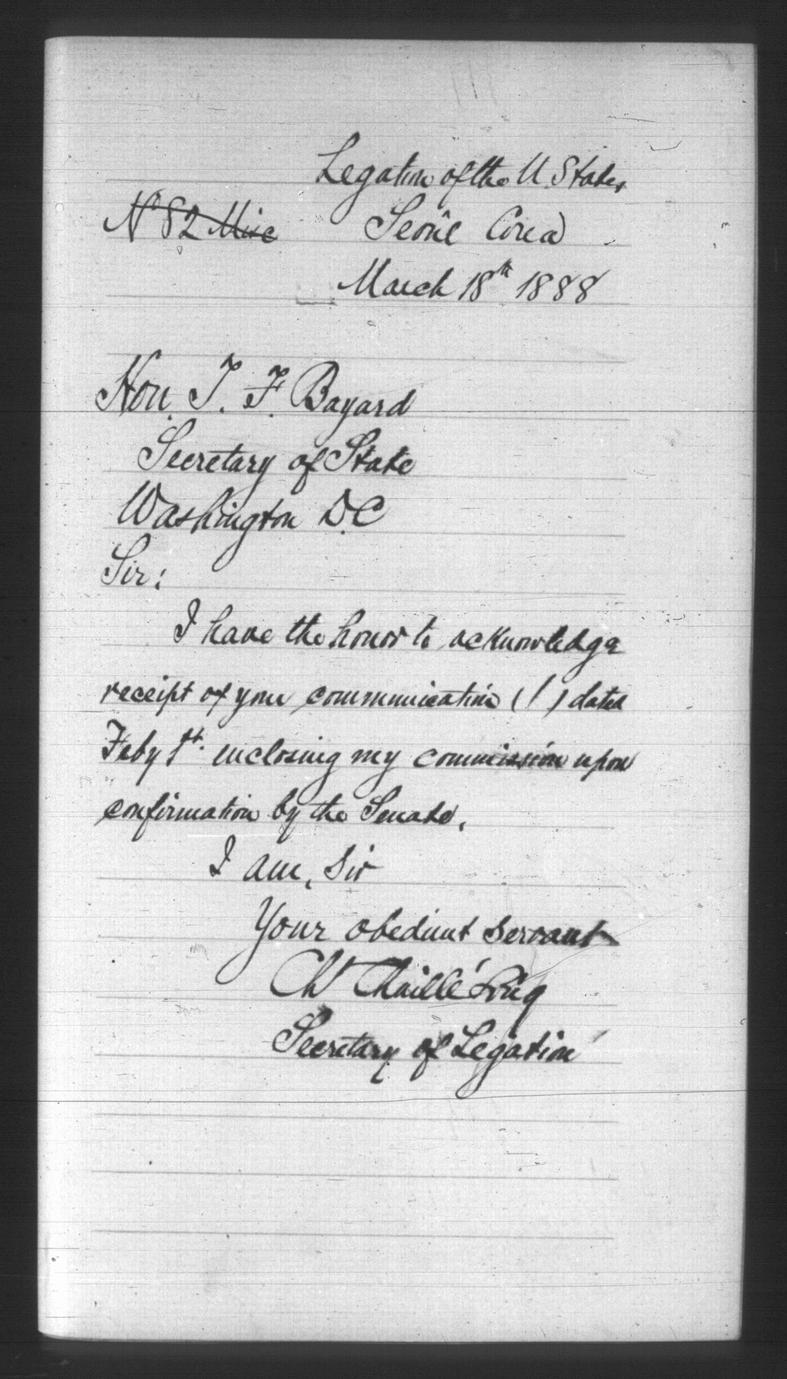 Legation of the U. States,
No 82 Misc Seoul Corea
March 18th 1888
Hon. T. F. Bayard
Secretary of State
Washington D.C
Sir:
I have the honor to acknowledge
receipt of your communication (1) dated
Feby 1st. inclosing my commission upon
confirmation by the Senate.
I am, Sir
Your obedient servant
Ch Chaillé Long
Secretary of Legation